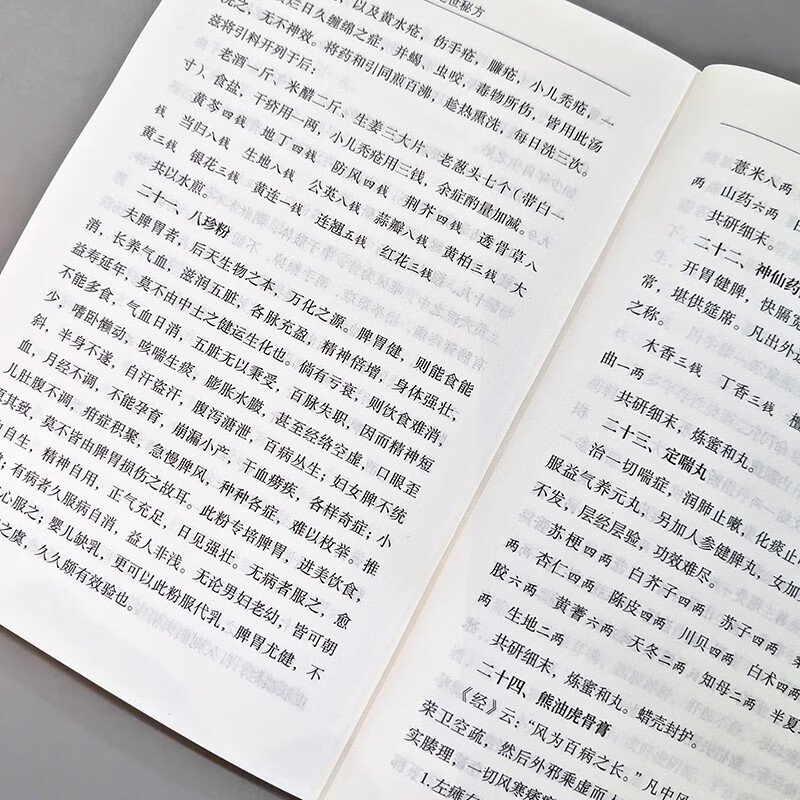 世秘方
烂日久缠绵之症，并蝎、虫咬，毒物所伤，皆用此汤
以及黄水疮，伤手疮，臁疮，小儿秃疮，
洗之，无不神效。将药和引同煎百沸，趁热熏洗，每日洗三次。
兹将引料开列于后：
老酒一斤、米醋二斤、生姜三大片、老葱头七个（带白一
寸）、食盐，干疥用一两，小儿秃疮用三钱，余症酌量加减。
黄芩四钱 地丁四钱 防风四钱 荆芥四钱 透骨草八
钱 当归八钱 生地八钱 公英八钱 蒜瓣八钱 黄柏三钱 大
黄三钱 银花三钱 黄连一钱 连翘五钱 红花三钱
共以水煎。
二十一、八珍粉
夫脾胃者，后天生物之本，万化之源。脾胃健，则能食能
消，长养气血，滋润五脏，各脉充盈，精神倍增，身体强壮，
益寿延年，莫不由中土之健运生化也。倘有亏衰，则饮食难消，
不能多食，气血日消，五脏无以秉受，百脉失职，因而精神短
少，嗜卧懒动，咳喘生痰，膨胀水臌，甚至经络空虚，口眼歪
斜，半身不遂，自汗盗汗，腹泻溏泄，百病丛生；妇女脾不统
血，月经不调，不能孕育，崩漏小产，干血痨疾，各样奇症；小
儿肚腹不调，疳症积聚，急慢脾风，种种各症，难以枚举。推
其致，莫不皆由脾胃损伤之故耳。此粉专培脾胃，进美饮食，
自生，精神自用，正气充足，日见强壮。无病者服之，愈
；有病者久服病自消，益人非浅。无论男妇老幼，皆可朝
心服之；婴儿缺乳，更可以此粉服代乳，脾胃尤健，不
之虞，久久颇有效验也。
薏米八两
两 山药六两
共研细末。
二十二、神仙药
开胃健脾，快膈宽
常，堪供筵席。凡出外
之称。
木香三钱 丁香三钱
曲一两
共研细末，炼蜜和丸。
二十三、定喘丸
治一切喘症，润肺止嗽，化痰止
服益气养元丸，另加人参健脾丸，女加
不发，层经层验，功效难尽。
苏梗四两 白芥子四两 苏子四两
两 杏仁四两 陈皮四两 川贝四两 白术四两
胶六两 黄蓍六两 天冬二两 知母二两 半夏
两 生地二两
共研细末，炼蜜和丸。蜡壳封护。
二十四、熊油虎骨膏
《经》云：“风为百病之长。”凡中风
荣卫空疏，然后外邪乘虚而
实腠理，一切风寒痿痹
1.左瘫右